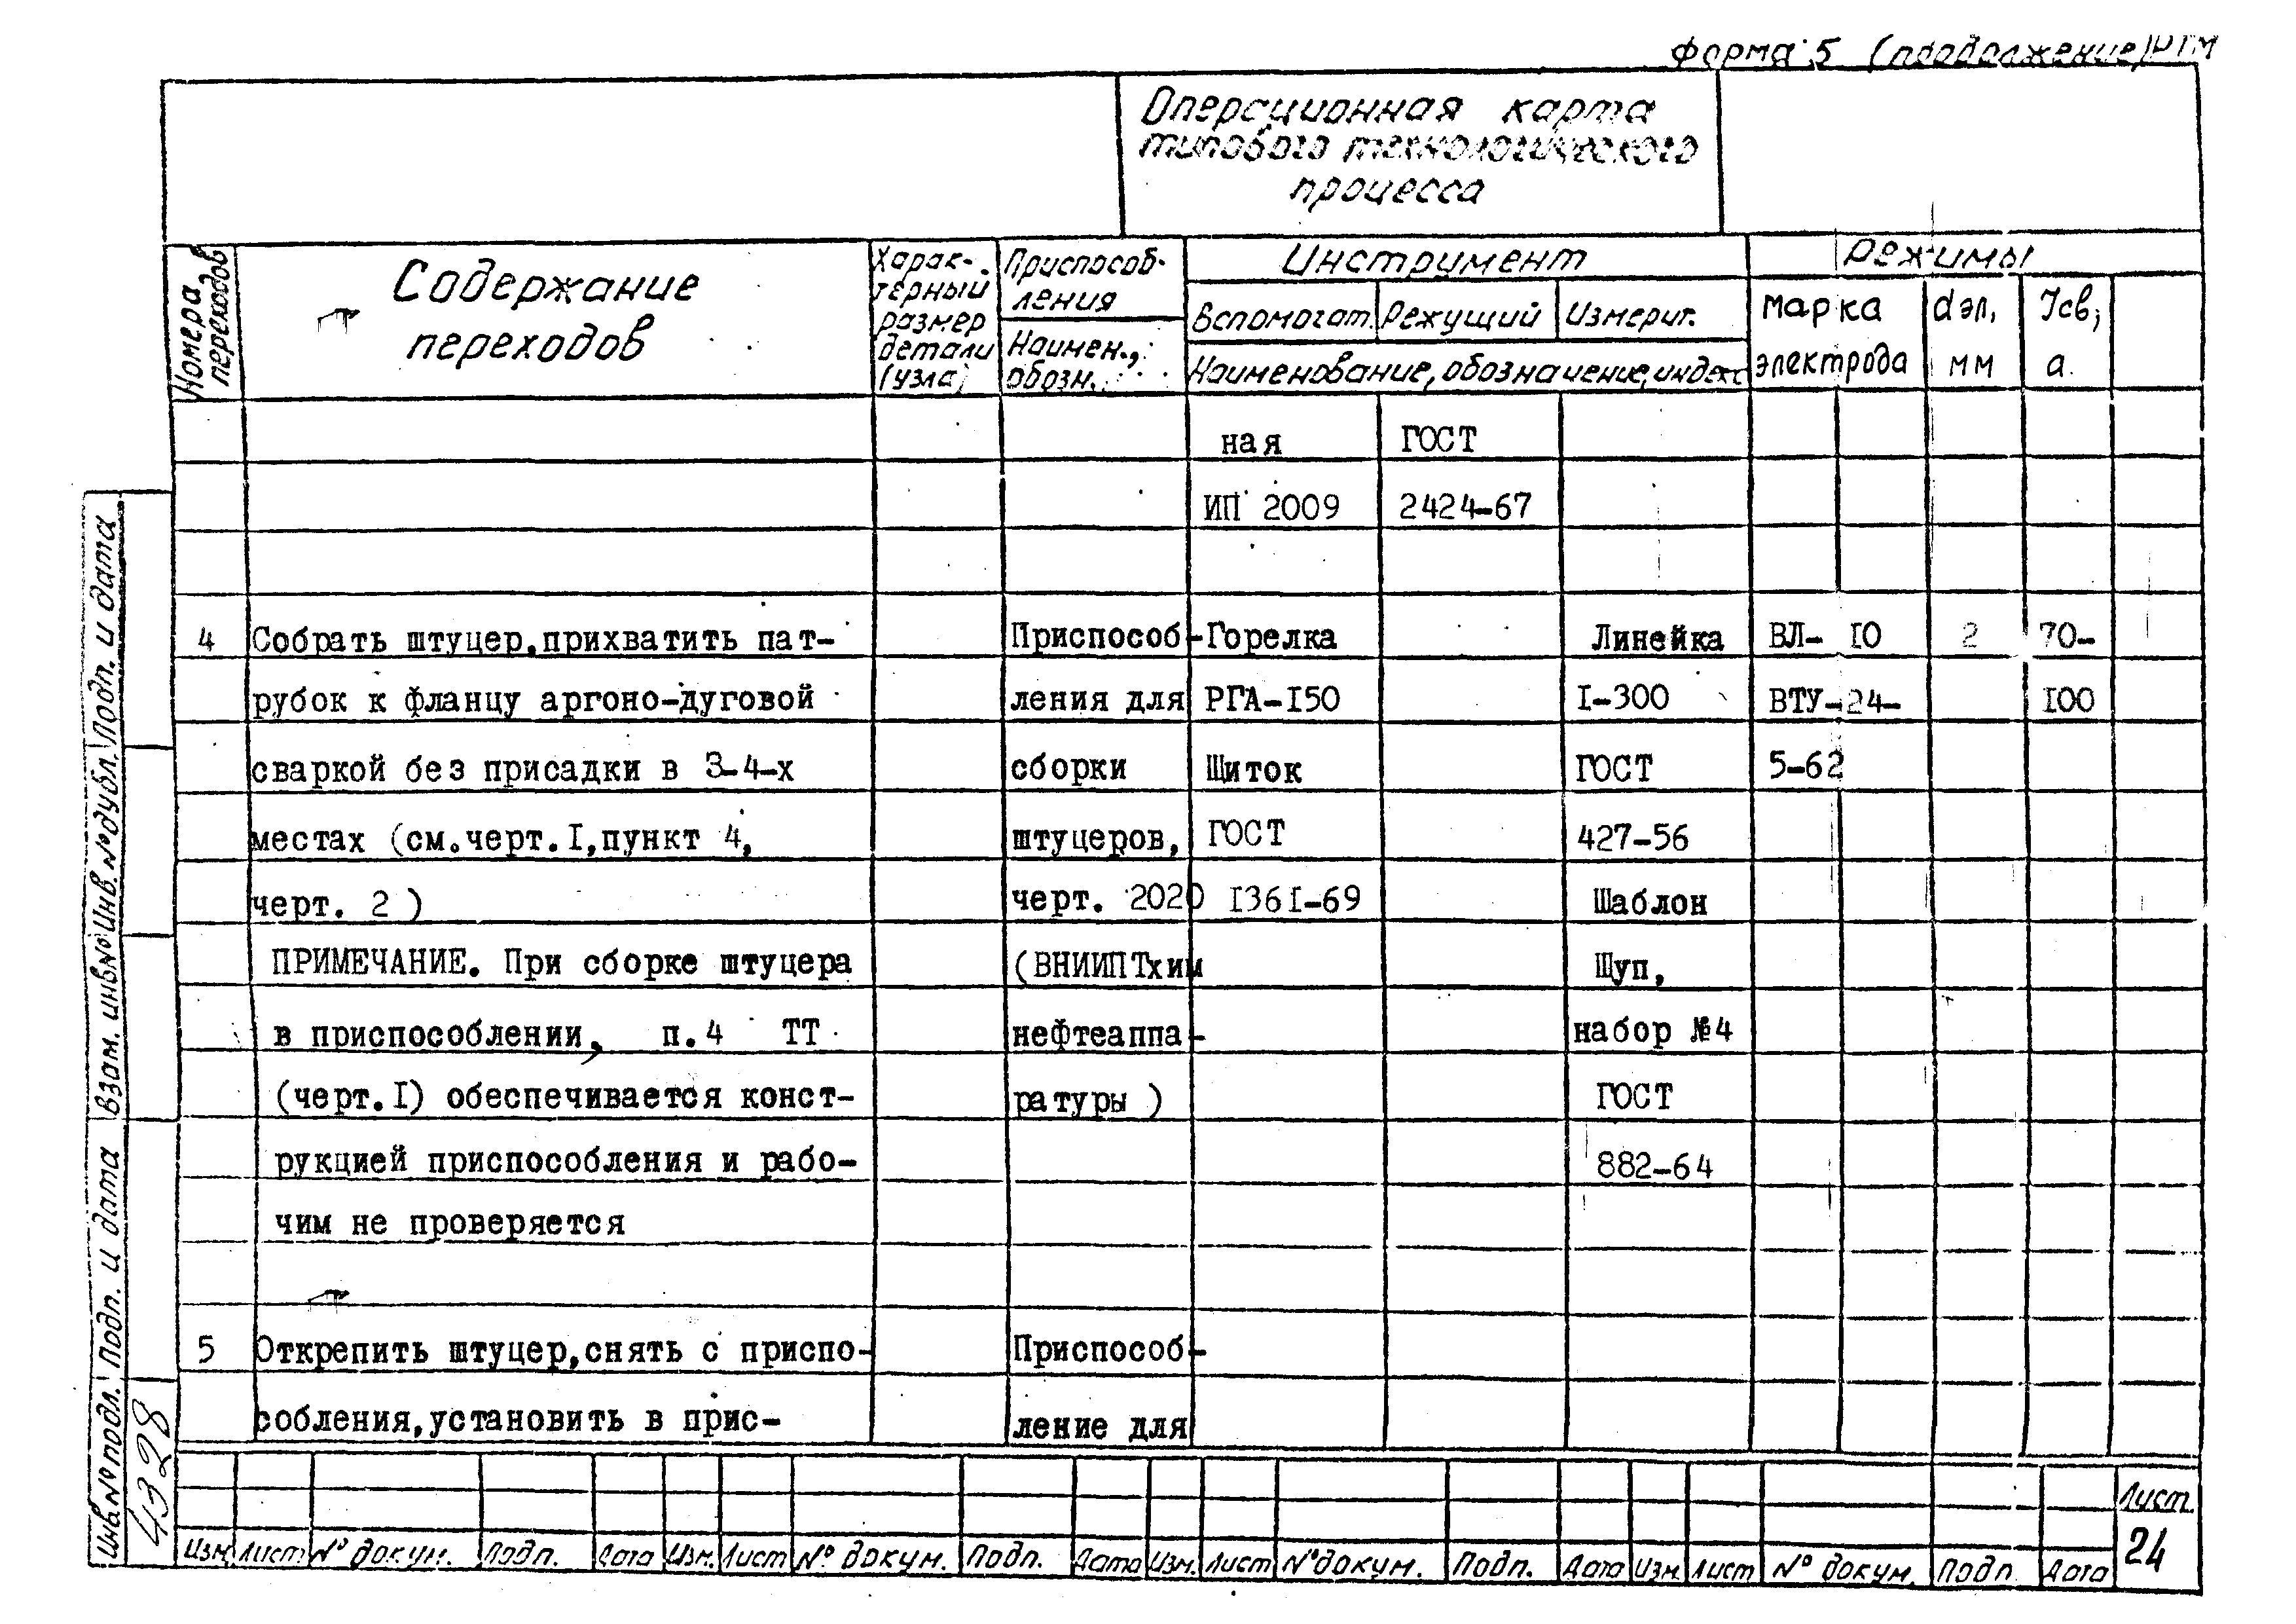 Форма 5 (продолжение) РТМ
Операционная карта
типового технологического
процесса
Номера
переходов
Содержание
переходов
Харак-
терный
размер
детали
(узла)
Приспособ-
ления
Наимен.,
обозн.
Инструмент
Вспомогат. Режущий Измерит.
Наименование, обозначение, индекс
Режимы
марка
электрода
dэл,
мм
Iсв,
а.
ная ГОСТ
ИП 2009 2424-67
4 Собрать штуцер, прихватить пат- Приспособ- Горелка Линейка ВЛ-10 2 70-
рубок к фланцу аргоно-дуговой ления для РГА-I50 I-300 ВТУ-24- I00
сваркой без присадки в 3-4-х сборки Щиток ГОСТ 5-62
местах (см.черт.I,пункт 4, штуцеров, ГОСТ 427-56
черт. 2 ) черт. 2020 I36I-69 Шаблон
ПРИМЕЧАНИЕ. При сборке штуцера (ВНИИПТхим Щуп,
в приспособлении, п.4 ТТ нефтеаппа- набор №4
(черт.I) обеспечивается конст- ратуры ) ГОСТ
рукцией приспособления и рабо- 882-64
чим не проверяется
5 Открепить штуцер,снять с приспо- Приспособ-
собления,установить в прис- ление для
Инв.№ подл. Подп. и дата Взам. инв № Инв. № дубл. Подп. и дата
4328
Изм Лист № докум. Подп. Дата Изм. Лист № докум. Подп. Дата Изм. Лист № докум. Подп. Дата Изм Лист № докум. Подп Дата
Лист.
24